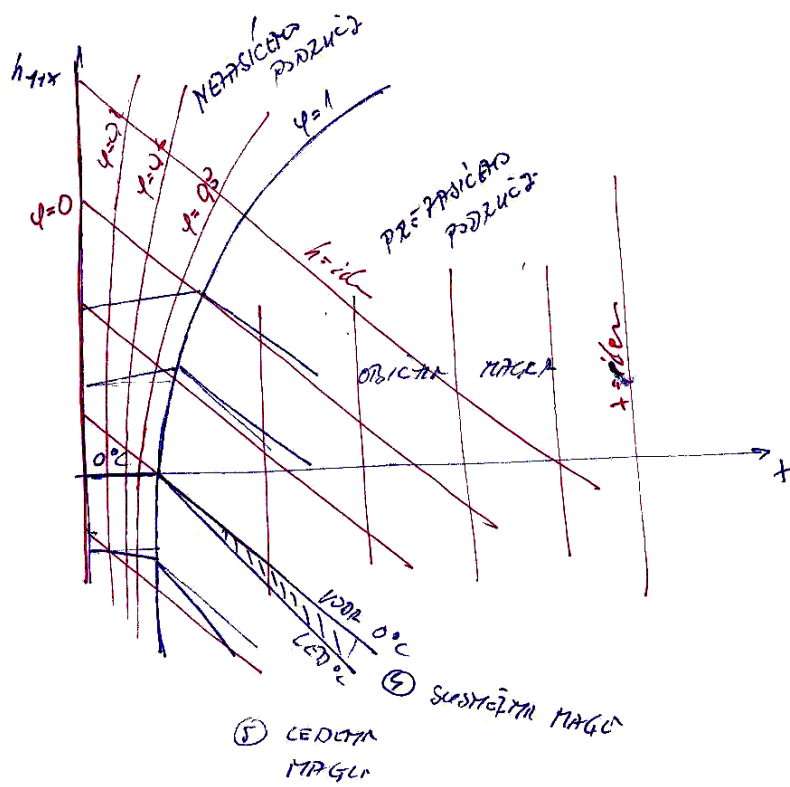 h1+x
NEZASIĆENO
PODRUČJE
φ=1
φ=0
PREZASIĆENO
PODRUČJE
OBIČNA MAGLA
0°C
x
VODA 0°C
LED 0°C
④ SUSNEŽNA MAGLA
⑤ LEDENA
MAGLA